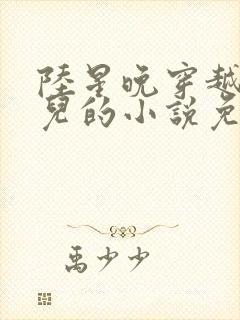 陸星晚穿越
兒的小說免
禹少少